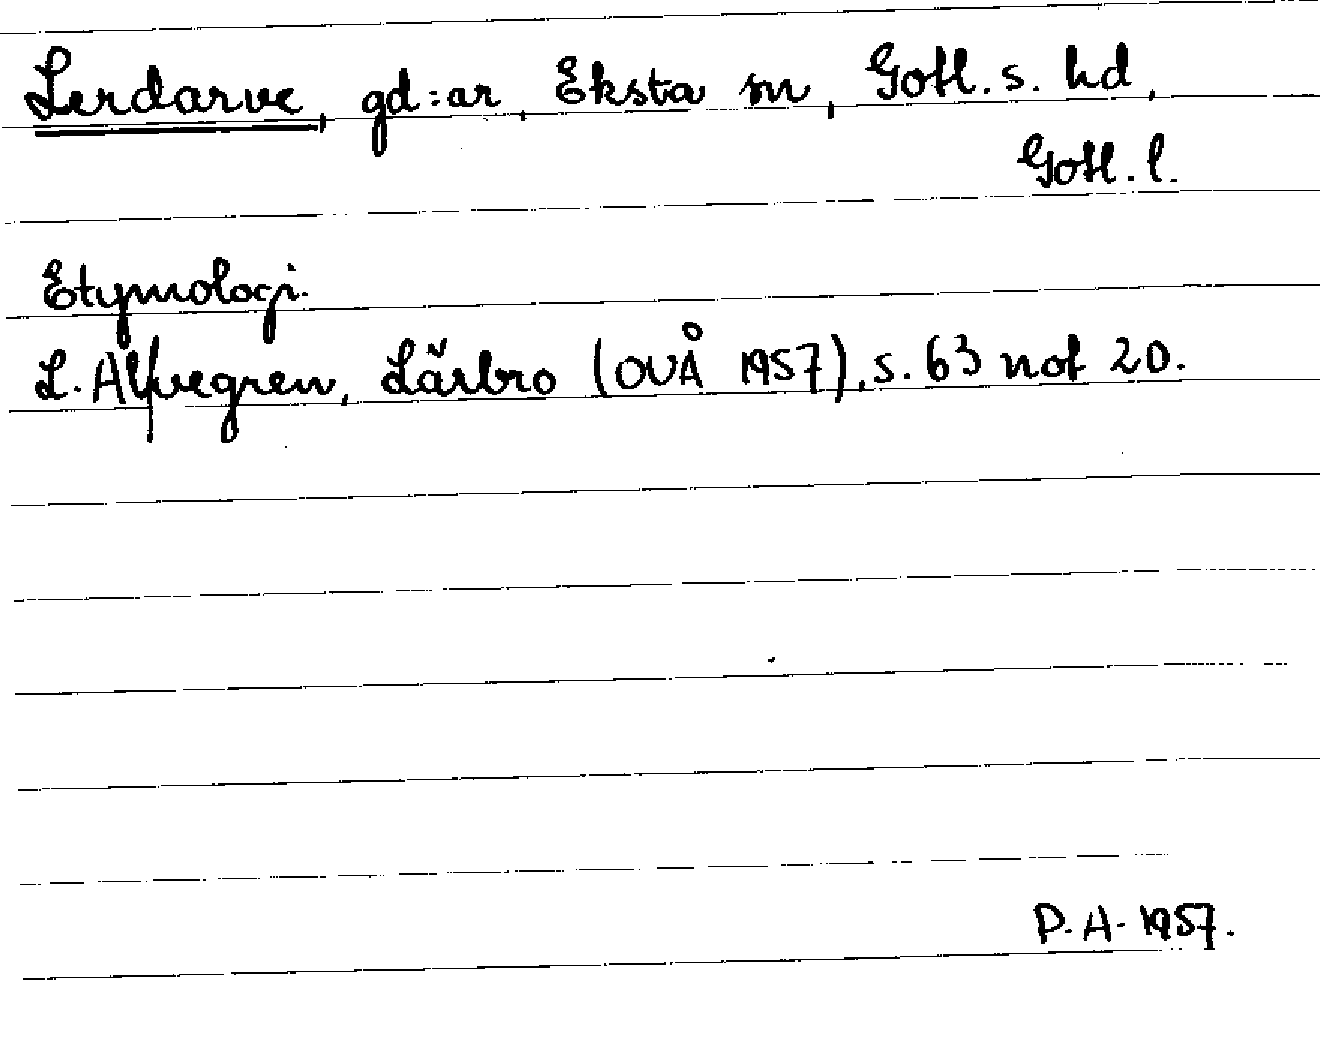 Lerdarve, gd:ar, Eksta sn, Gotl. s. hd,
Gotl. l.
Etymologi.
L. Alfvegren, Lärbro (OUÅ 1957), s. 63 not 20.
P. A. 1957.